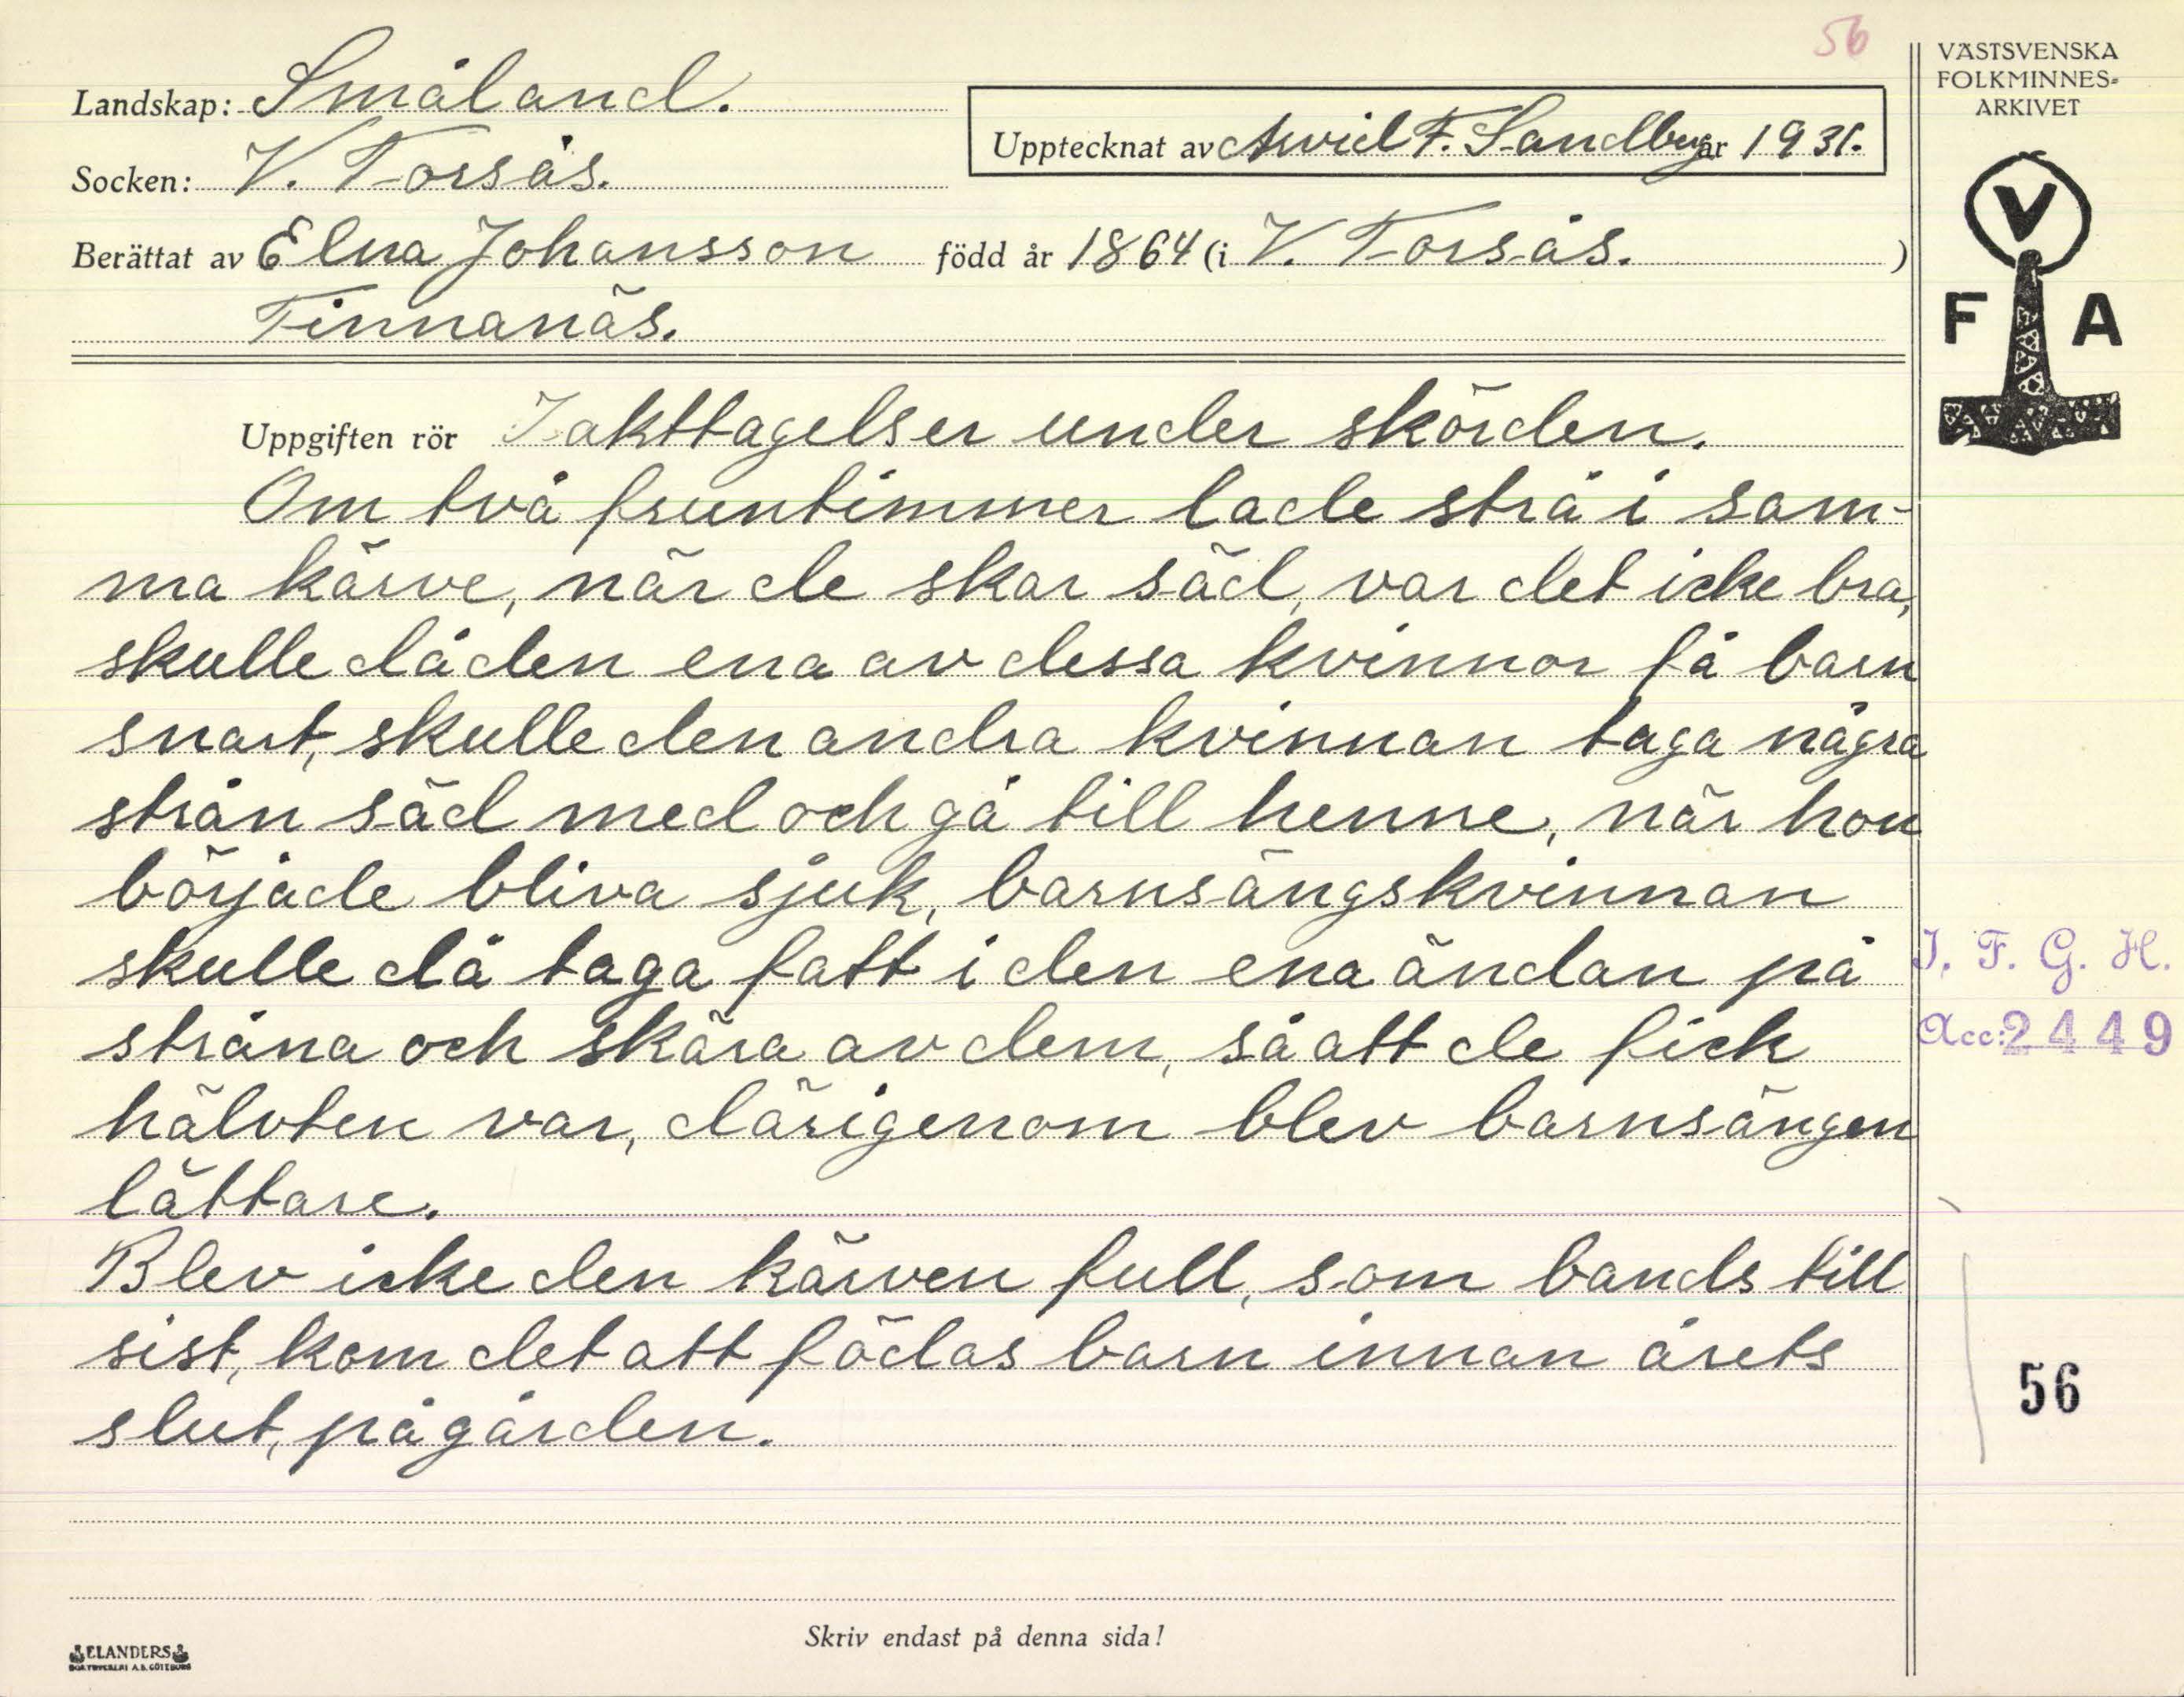 56
Landskap: Småland.
Socken: V. Torsås.
Upptecknat av Arvid F. Sandberg år 1931.
Berättat av Elna Johansson född år 1864 (i V. Torsås. )
Tinnanäs.
Uppgiften rör Iakttagelser under skörden.
Om två fruntimmer lade strå i sam-
ma kärve, när de skar säd, var det icke bra,
skulle då den ena av dessa kvinnor få barn
snart, skulle den andra kvinnan taga några
strån säd med och gå till henne, när hon
började bliva sjuk, barnsängskvinnan
skulle då taga fatt i den ena ändan på
stråna och skära av dem, så att de fick
hälvten var, därigenom blev barnsängen
lättare.
Blev icke den kärven full, som bands till
sist, kom det att födas barn innan årets
slut, på gården.
Skriv endast på denna sida!
ELANDERS
BOKTRYCKERI A.B. GÖTEBORG
VÄSTSVENSKA
FOLKMINNES-
ARKIVET
V
F A
I. F. G. H.
Acc: 2449
56